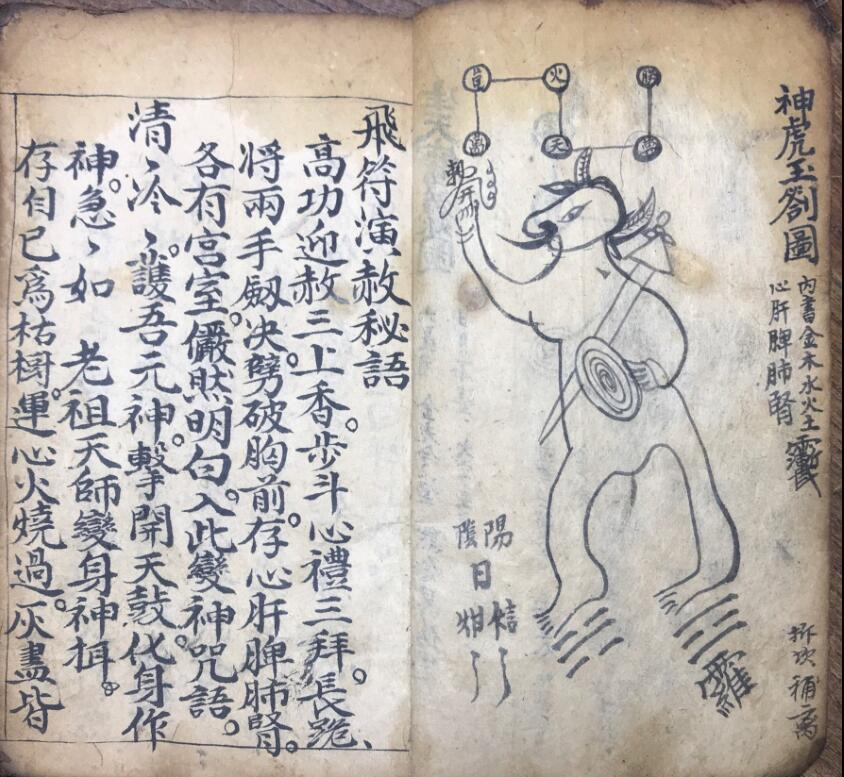 神虎王劄圖
内書金木水火土
心肝脾肺腎
拆坎補离
火
天
陰陽
日
飛符演赦秘語
高功迎赦三上香。步斗心禮三拜。長跪、
將兩手劔决劈破胸前。存心肝脾肺腎。
各有宮室。儼然明白。入此變神咒語。
清〻冷〻。護吾元神。擊開天鼓。化身作
神。急〻如 老祖天師變身神
存自已爲枯樹。運心火燒過。灰盡皆